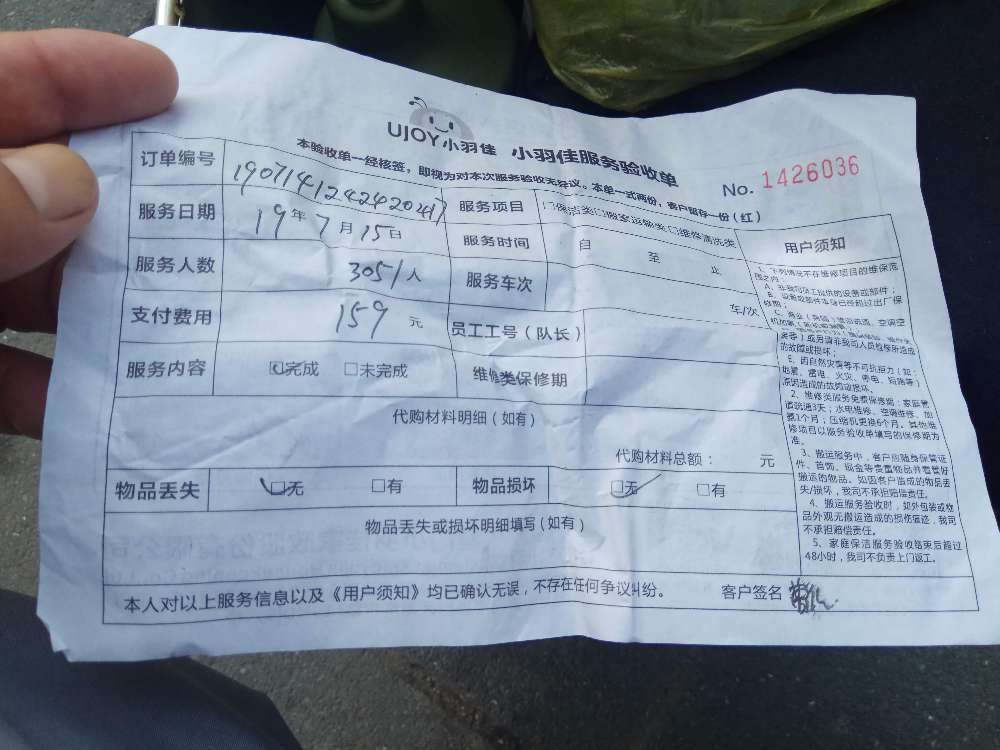 UJOY小羽佳 小羽佳服务验收单
本验收单一经核签，即视为对本次服务验收无异议。本单一式两份，客户留存一份（红）
No. 1426036
订单编号 1907141242420417 服务项目 □保洁类□搬家运输类□维修清洗类
服务日期 19年7月15日 服务时间 自 至 止
服务人数 3051人 服务车次 车/次
支付费用 159元 员工工号（队长）
服务内容 □完成 □未完成 维修类保修期
代购材料明细（如有）
代购材料总额： 元
物品丢失 □无 □有 物品损坏 □无 □有
物品丢失或损坏明细填写（如有）
本人对以上服务信息以及《用户须知》均已确认无误，不存在任何争议纠纷。 客户签名
用户须知
1、下列情况不存在维修项目的维保范
围之内：
A、非我司员工提供的设备或部件；
B、设备或部件本身已经超过出厂保
修期；
或另请非我司人员检修所造成
的故障或损坏；
E、因自然灾害等不可抗拒力（如：
地震、雷电、火灾、停电、短路等）
原因造成的故障或损坏。
2、维修类服务免费保修期：家庭管
道疏通3天；水电维修、空调维修、加
氨1个月；压缩机更换6个月。其他维
修项目以服务验收单填写的保修期为
准。
3、搬运服务中，客户应随身保管证
件、首饰、现金等贵重物品并看管好
搬运的物品。如因客户造成的物品丢
失/损坏，我司不承担赔偿责任。
4、搬运服务验收时，如外包装或物
品外观无搬运造成的损伤痕迹，我司
不承担赔偿责任。
5、家庭保洁服务验收结束后超过
48小时，我司不负责上门返工。